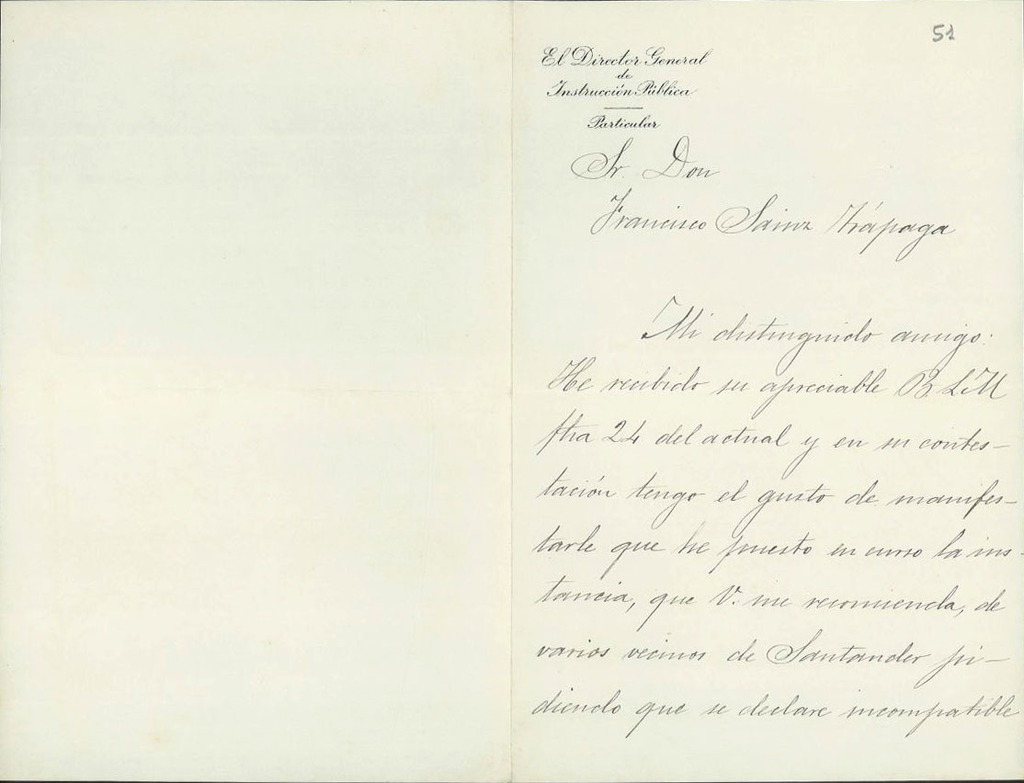 51
El Director General
de
Instrucción Pública
Particular
Sr. Don
Francisco Sainz Trápaga
Mi distinguido amigo:
He recibido su apreciable B. L. M
fha 24 del actual y en su contes-
tación tengo el gusto de manifes-
tarle que he puesto en curso la ins-
tancia, que V. me recomienda, de
varios vecinos de Santander pi-
diendo que se declare incompatible